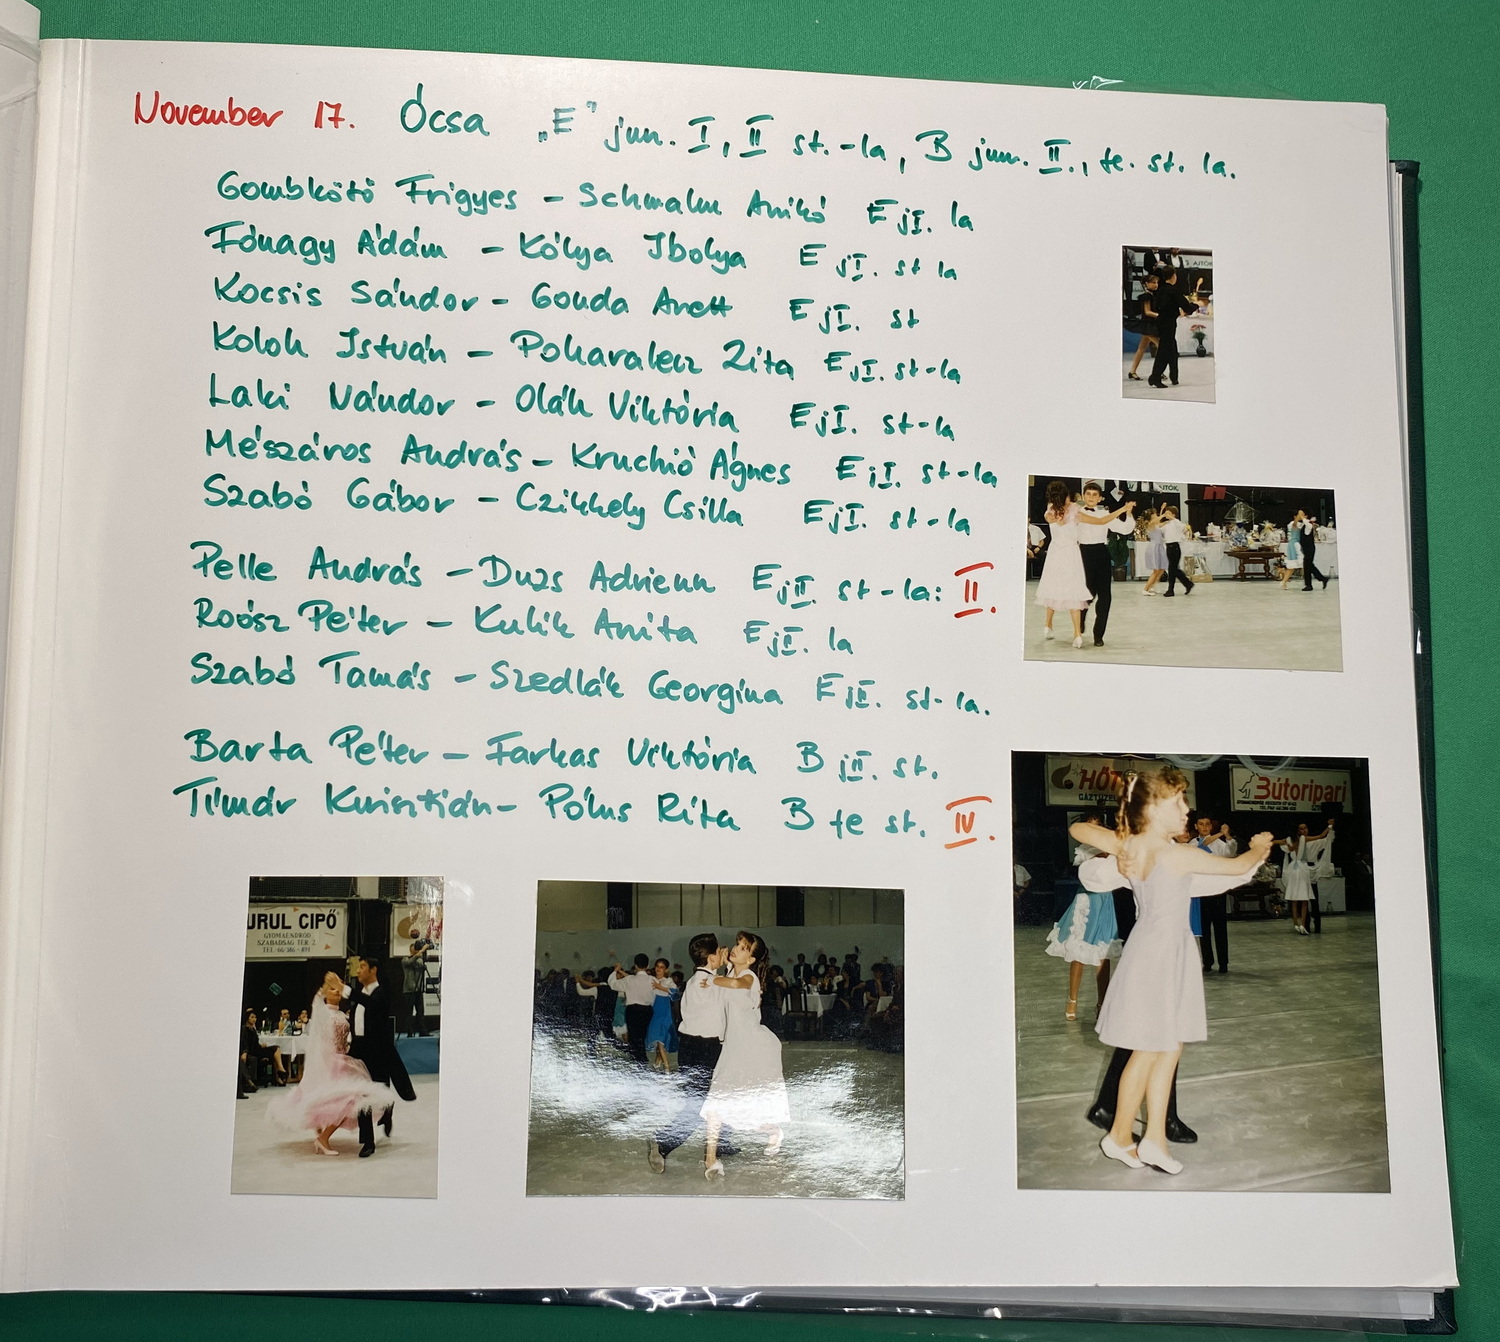 November 17. Ócsa „E" jun. I, II st.-la, B jun. II., fe. st. la.
Gombkötő Frigyes - Schmalm Anikó E jI. la
Fónagy Ádám - Kólya Ibolya E jI. st la
Kocsis Sándor - Gonda Anett E jI. st
István - Zita E jI. st-la
Laki Nándor - Oláh Viktória E jI. st-la
Mészáros András - Kruchió Ágnes E jI. st-la
Szabó Gábor - Czikkely Csilla E jI. st-la
Pelle András - Adrienn E jII. st-la: II.
Roósz Péter - Kulik Anita la
Szabó Tamás - Szedlák Georgina E jII. st-la.
Barta Péter - Farkas Viktória B jII. st.
Tímár Krisztián - Pólus Rita B fe st. IV.
AJTÓK
AJTÓK
HŐT
Bútoripari
URUL CIPŐ
GYOMAENDRŐD
SZABADSÁG TÉR 2.
TEL.:66/386-891